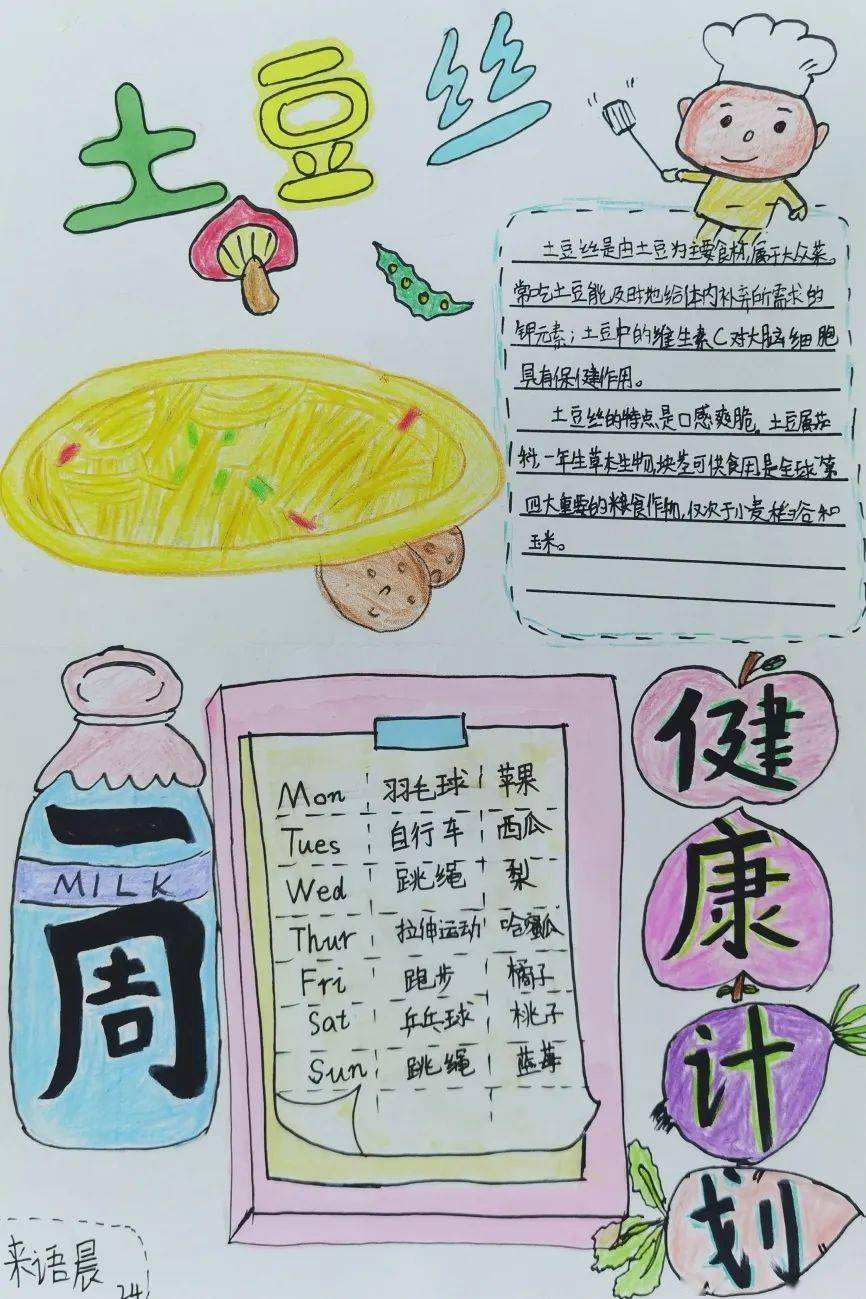 土豆丝
土豆丝是由土豆为主要食材,属于大众菜。
常吃土豆能及时地给体内补充所需求的
钾元素；土豆中的维生素C对大脑细胞
具有保健作用。
土豆丝的特点是口感爽脆。土豆属茄
科,一年生草本生物,块茎可供食用是全球第
四大重要的粮食作物,仅次于小麦稻谷和
玉米。
一周
MILK
健康计划
Mon 羽毛球 苹果
Tues 自行车 西瓜
Wed 跳绳 梨
Thur 拉伸运动 哈蜜瓜
Fri 跑步 橘子
Sat 乒乓球 桃子
Sun 跳绳 蓝莓
来语晨
24